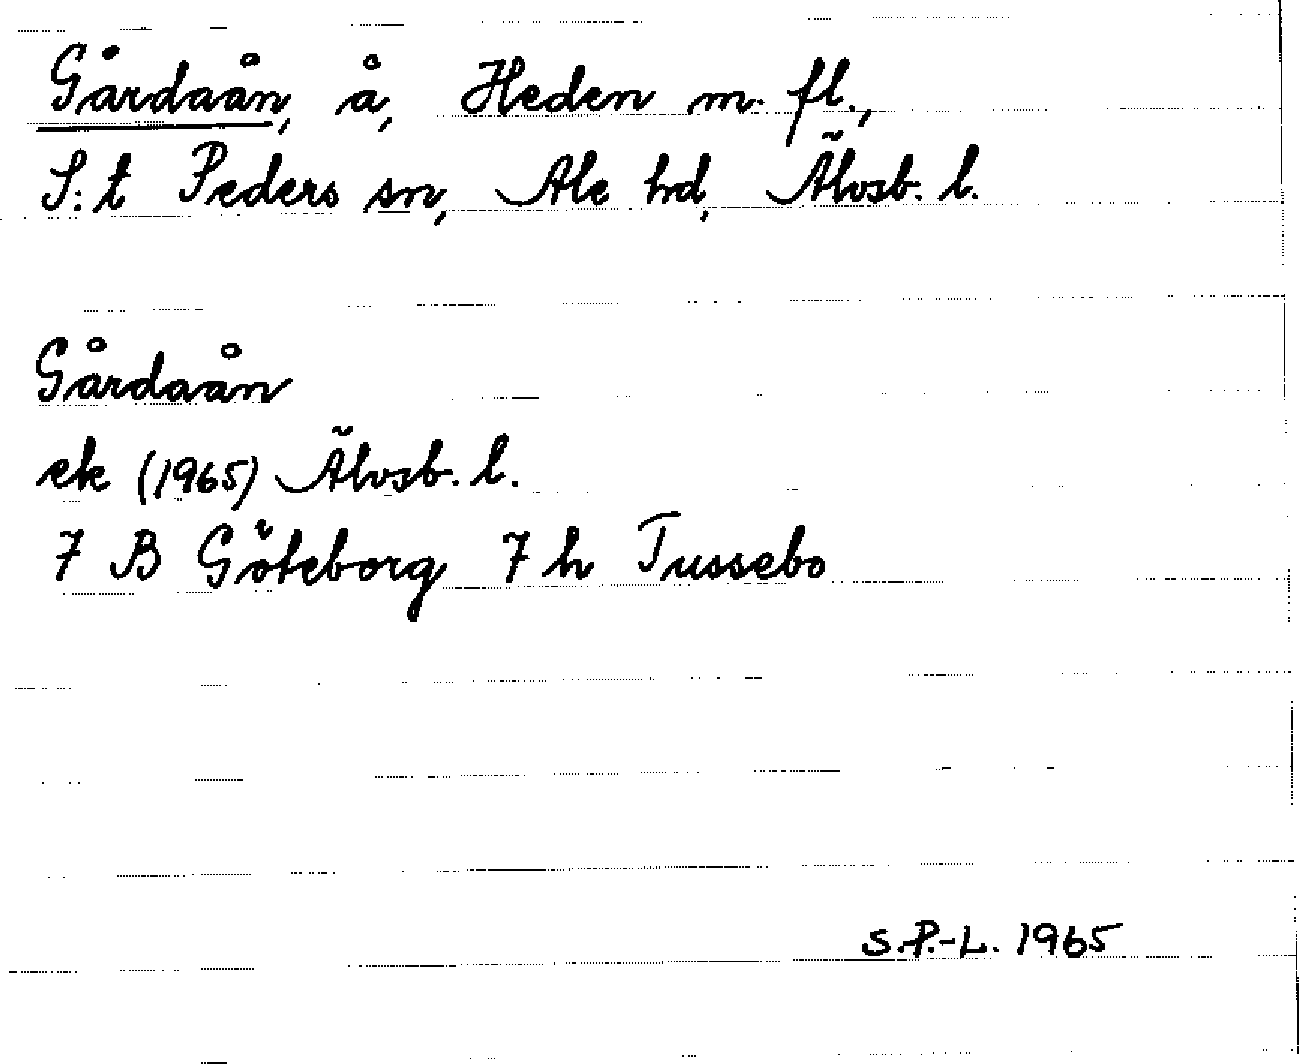 Gårdaån, å, Heden m. fl.,
S:t Peders sn, Ale hd, Älvsb. l.
Gårdaån
ek (1965) Älvsb. l.
7 B Göteborg 7 h Tussebo
S.P.-L. 1965